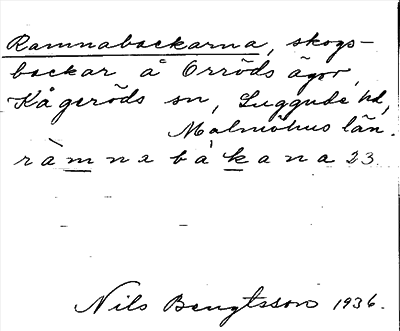 Ramnabackarna, skogs-
backar å Orröds ägor,
Kågeröds sn, Luggude hd,
Malmöhus län.
ràmnabákana 23.
Nils Bengtsson 1936.